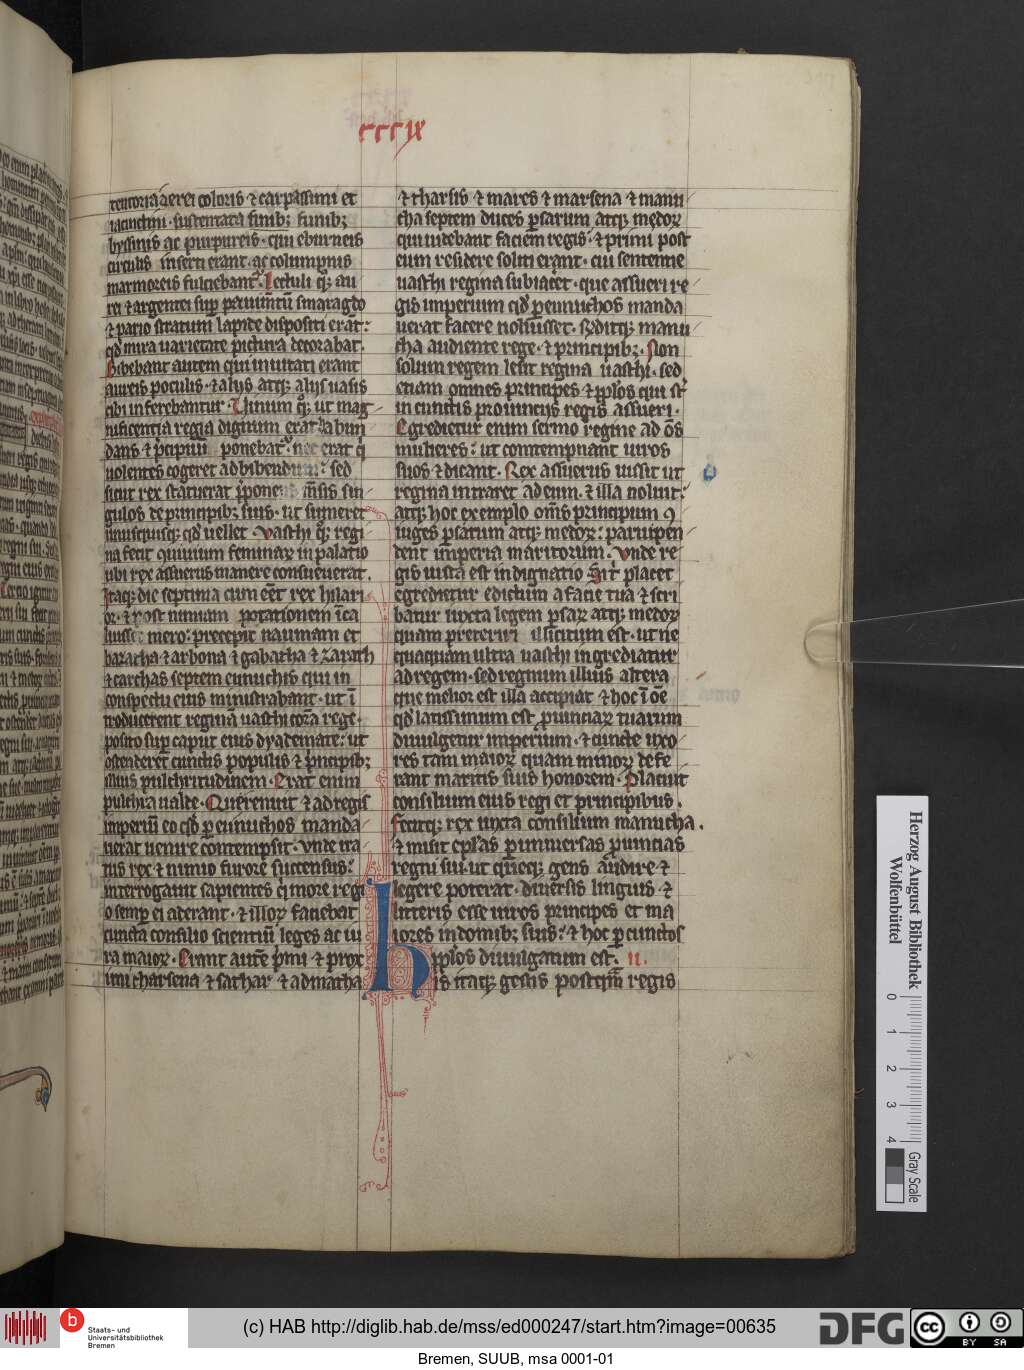 cccix
tentoria aerei coloris ⁊ carpassini et
iacinctini · sustentata funib; funib;
byssinis ac purpureis · qui eburneis
circulis inserti erant · ac columpnis
marmoreis fulciebant᷑. Lectuli q̊; au
rei ⁊ argentei sup̱ pauim̄tū smaragdo
⁊ pario stratum lapide dispositi erāt:
qd̓ mira uarietate pictura decorabat.
Bibebant autem qui inuitati erant
aureis poculis · ⁊ alijs atq; alijs uasis
cibi inferebantur · Uinum q̊; ut mag
nificentia regia dignum erat habun
dans ⁊ p̄cipuū ponebat᷑ · nec erat q̇
nolentes cogeret ad bibendum: sed
sicut rex statuerat p̄ponens m̄sis sin
gulos de principib; suis · ut sumeret
unusquisq; qd̓ uellet · Vasthi q̊; regi
na fecit quiuium feminaꝝ in palatio
ubi rex assuerus manere consueuerat.
Itaq; die septima cum eēt rex hilari
or · ⁊ post nimiam potationem īca
luisset mero: precepit naumam et
baratha ⁊ arbona ⁊ gabatha ⁊ zarath
⁊ carchas septem eunuchis qui in
conspectu eius ministrabant · ut ī
troducerent reginā uasthi corā rege ·
posito sup̱ caput eius dyademate: ut
ostenderet cunctis populis ⁊ p̄ncipib;
illius pulchritudinem · Erat enim
pulchra ualde · Que rennuit ⁊ ad regis
imperiū eo qd̓ ꝑ eunuchos manda
uerat uenire contempsit: Unde ira
tus rex ⁊ nimio furore succensus:
interrogauit sapientes q̇ more regi
o semp̱ ei aderant · ⁊ illoꝝ faciebat
cuncta consilio scientiū leges ac iu
ra maioꝝ · Erant autē p̄mi ⁊ prox
imi charsena ⁊ sathar ⁊ admatha
⁊ tharsis ⁊ mares ⁊ marsena ⁊ manu
cha septem duces ꝑsarum atq; medoꝝ
qui uidebant faciem regis · ⁊ primi post
eum residere soliti erant · cui sententie
uasthi regina subiacet · que assueri re
gis imperium qd̓ ꝑ eunuchos manda
uerat facere noluisset · Rn̄ditq; manu
cha audiente rege · ⁊ principib; · Non
solum regem lesit regina uasthi · sed
etiam omnes principes ⁊ pp̄los qui st̄
in cunctis prouincijs regis assueri ·
Egredietur enim sermo regine ad oēs
mulieres: ut contempnant uiros
suos ⁊ dicant · Rex assuerus iussit ut
regina intraret ad eum · ⁊ illa noluit:
atq; hoc exemplo om̄s principum ꝯ
iuges ꝑsarum atq; medoꝝ: paruipen
dent imperia maritorum · Unde re
gis iusta est indignatio Si t̓ placet
egredietur edictum a facie tua ⁊ scri
batur iuxta legem ꝑsaꝝ atq; medoꝝ
quam preteriri illicitum est · ut ne
quaquam ultra uasthi ingrediatur
ad regem · sed regnum illius altera
que melior est illa accipiat ⁊ hoc ī oē
qd̓ latissimum est ꝓuinciaꝝ tuarum
diuulgetur imperium · ⁊ cuncte uxo
res tam maioꝝ quam minoꝝ defe
rant maritis suis honorem · Placuit
consilium eius regi et principibus.
fecitq; rex iuxta consilium manucha.
⁊ misit ep̄las ꝑ uniuersas ꝓuincias
regni sui · ut queq; gens audire ⁊
legere poterat · diuersis linguis · ⁊
litteris esse uiros principes et ma
iores in domib; suis: ⁊ hoc ꝑ cunctos
pp̄los diuulgatum est. ii.
His itaq; gestis postqm̄ regis
Herzog August Bibliothek
Wolfenbüttel
0 1 2 3 4
Gray Scale
b
Staats- und
Universitätsbibliothek
Bremen
(c) HAB http://diglib.hab.de/mss/ed000247/start.htm?image=00635
DFG
cc BY SA
Bremen, SUUB, msa 0001-01